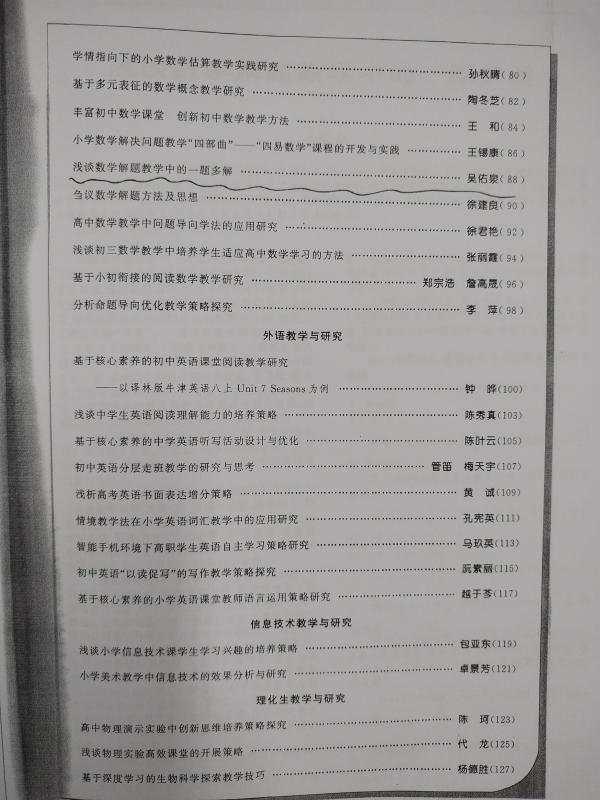 学情指向下的小学数学估算教学实践研究 …… 孙秋晴(80)
基于多元表征的数学概念教学研究 …… 陶冬芝(82)
丰富初中数学课堂 创新初中数学教学方法 …… 王 和(84)
小学数学解决问题教学“四部曲”——“四易数学”课程的开发与实践 …… 王锡康(86)
浅谈数学解题教学中的一题多解 …… 吴佑泉(88)
刍议数学解题方法及思想 …… 徐建良(90)
高中数学教学中问题导向学法的应用研究 …… 徐君艳(92)
浅谈初三数学教学中培养学生适应高中数学学习的方法 …… 张丽霞(94)
基于小初衔接的阅读数学教学研究 …… 郑宗浩 詹高晟(96)
分析命题导向优化教学策略探究 …… 李 萍(98)
外语教学与研究
基于核心素养的初中英语课堂阅读教学研究
——以译林版牛津英语八上 Unit 7 Seasons 为例 …… 钟 晔(100)
浅谈中学生英语阅读理解能力的培养策略 …… 陈秀真(103)
基于核心素养的中学英语听写活动设计与优化 …… 陈叶云(105)
初中英语分层走班教学的研究与思考 …… 管笛 梅天宇(107)
浅析高考英语书面表达增分策略 …… 黄 诚(109)
情境教学法在小学英语词汇教学中的应用研究 …… 孔宪英(111)
智能手机环境下高职学生英语自主学习策略研究 …… 马玖英(113)
初中英语“以读促写”的写作教学策略探究 …… 阮素丽(115)
基于核心素养的小学英语课堂教师语言运用策略研究 …… 越于荟(117)
信息技术教学与研究
浅谈小学信息技术课学生学习兴趣的培养策略 …… 包亚东(119)
小学美术教学中信息技术的效果分析与研究 …… 卓景芳(121)
理化生教学与研究
高中物理演示实验中创新思维培养策略探究 …… 陈 珂(123)
浅谈物理实验高效课堂的开展策略 …… 代 龙(125)
基于深度学习的生物科学探索教学技巧 …… 杨德胜(127)